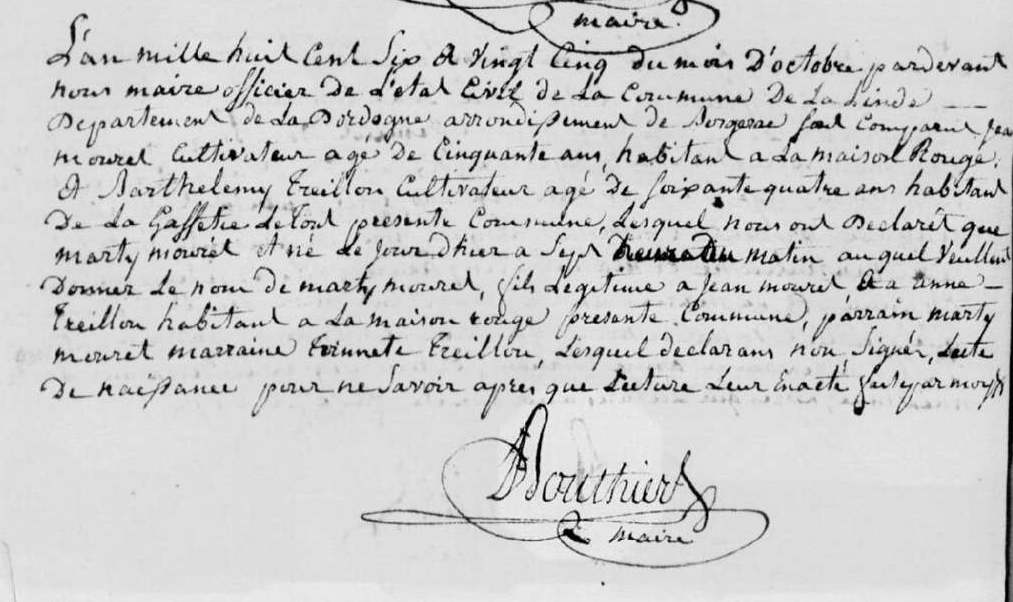 maire.
L'an mille huit Cent Six et Vingt Cinq du mois D'octobre pardevant
nous maire officier De L'etat Civil de La Commune De La Linde
Departement de La Dordogne arrondissement de Bergerac sont Comparut Jean
mouret Cultivateur agé De Cinquante ans, habitant a La maison Rouge.
Et Barthelemy Treillou Cultivateur agé De soixante quatre ans habitant
De La présente Commune, Lesquel nous ont Declarét que
marty mouret et né Le Jour D'hier a Sept heures du matin auquel Veullent
Donner Le nom De marty mouret, fils Legitime a Jean mouret et a anne
Treillou habitant a La maison rouge présente Commune, parrain marty
mouret marraine Treillou, Lesquel declarans non Signér, Lecte
De naissance pour ne Savoir apres, que Lecture Leur
Bouthier
maire